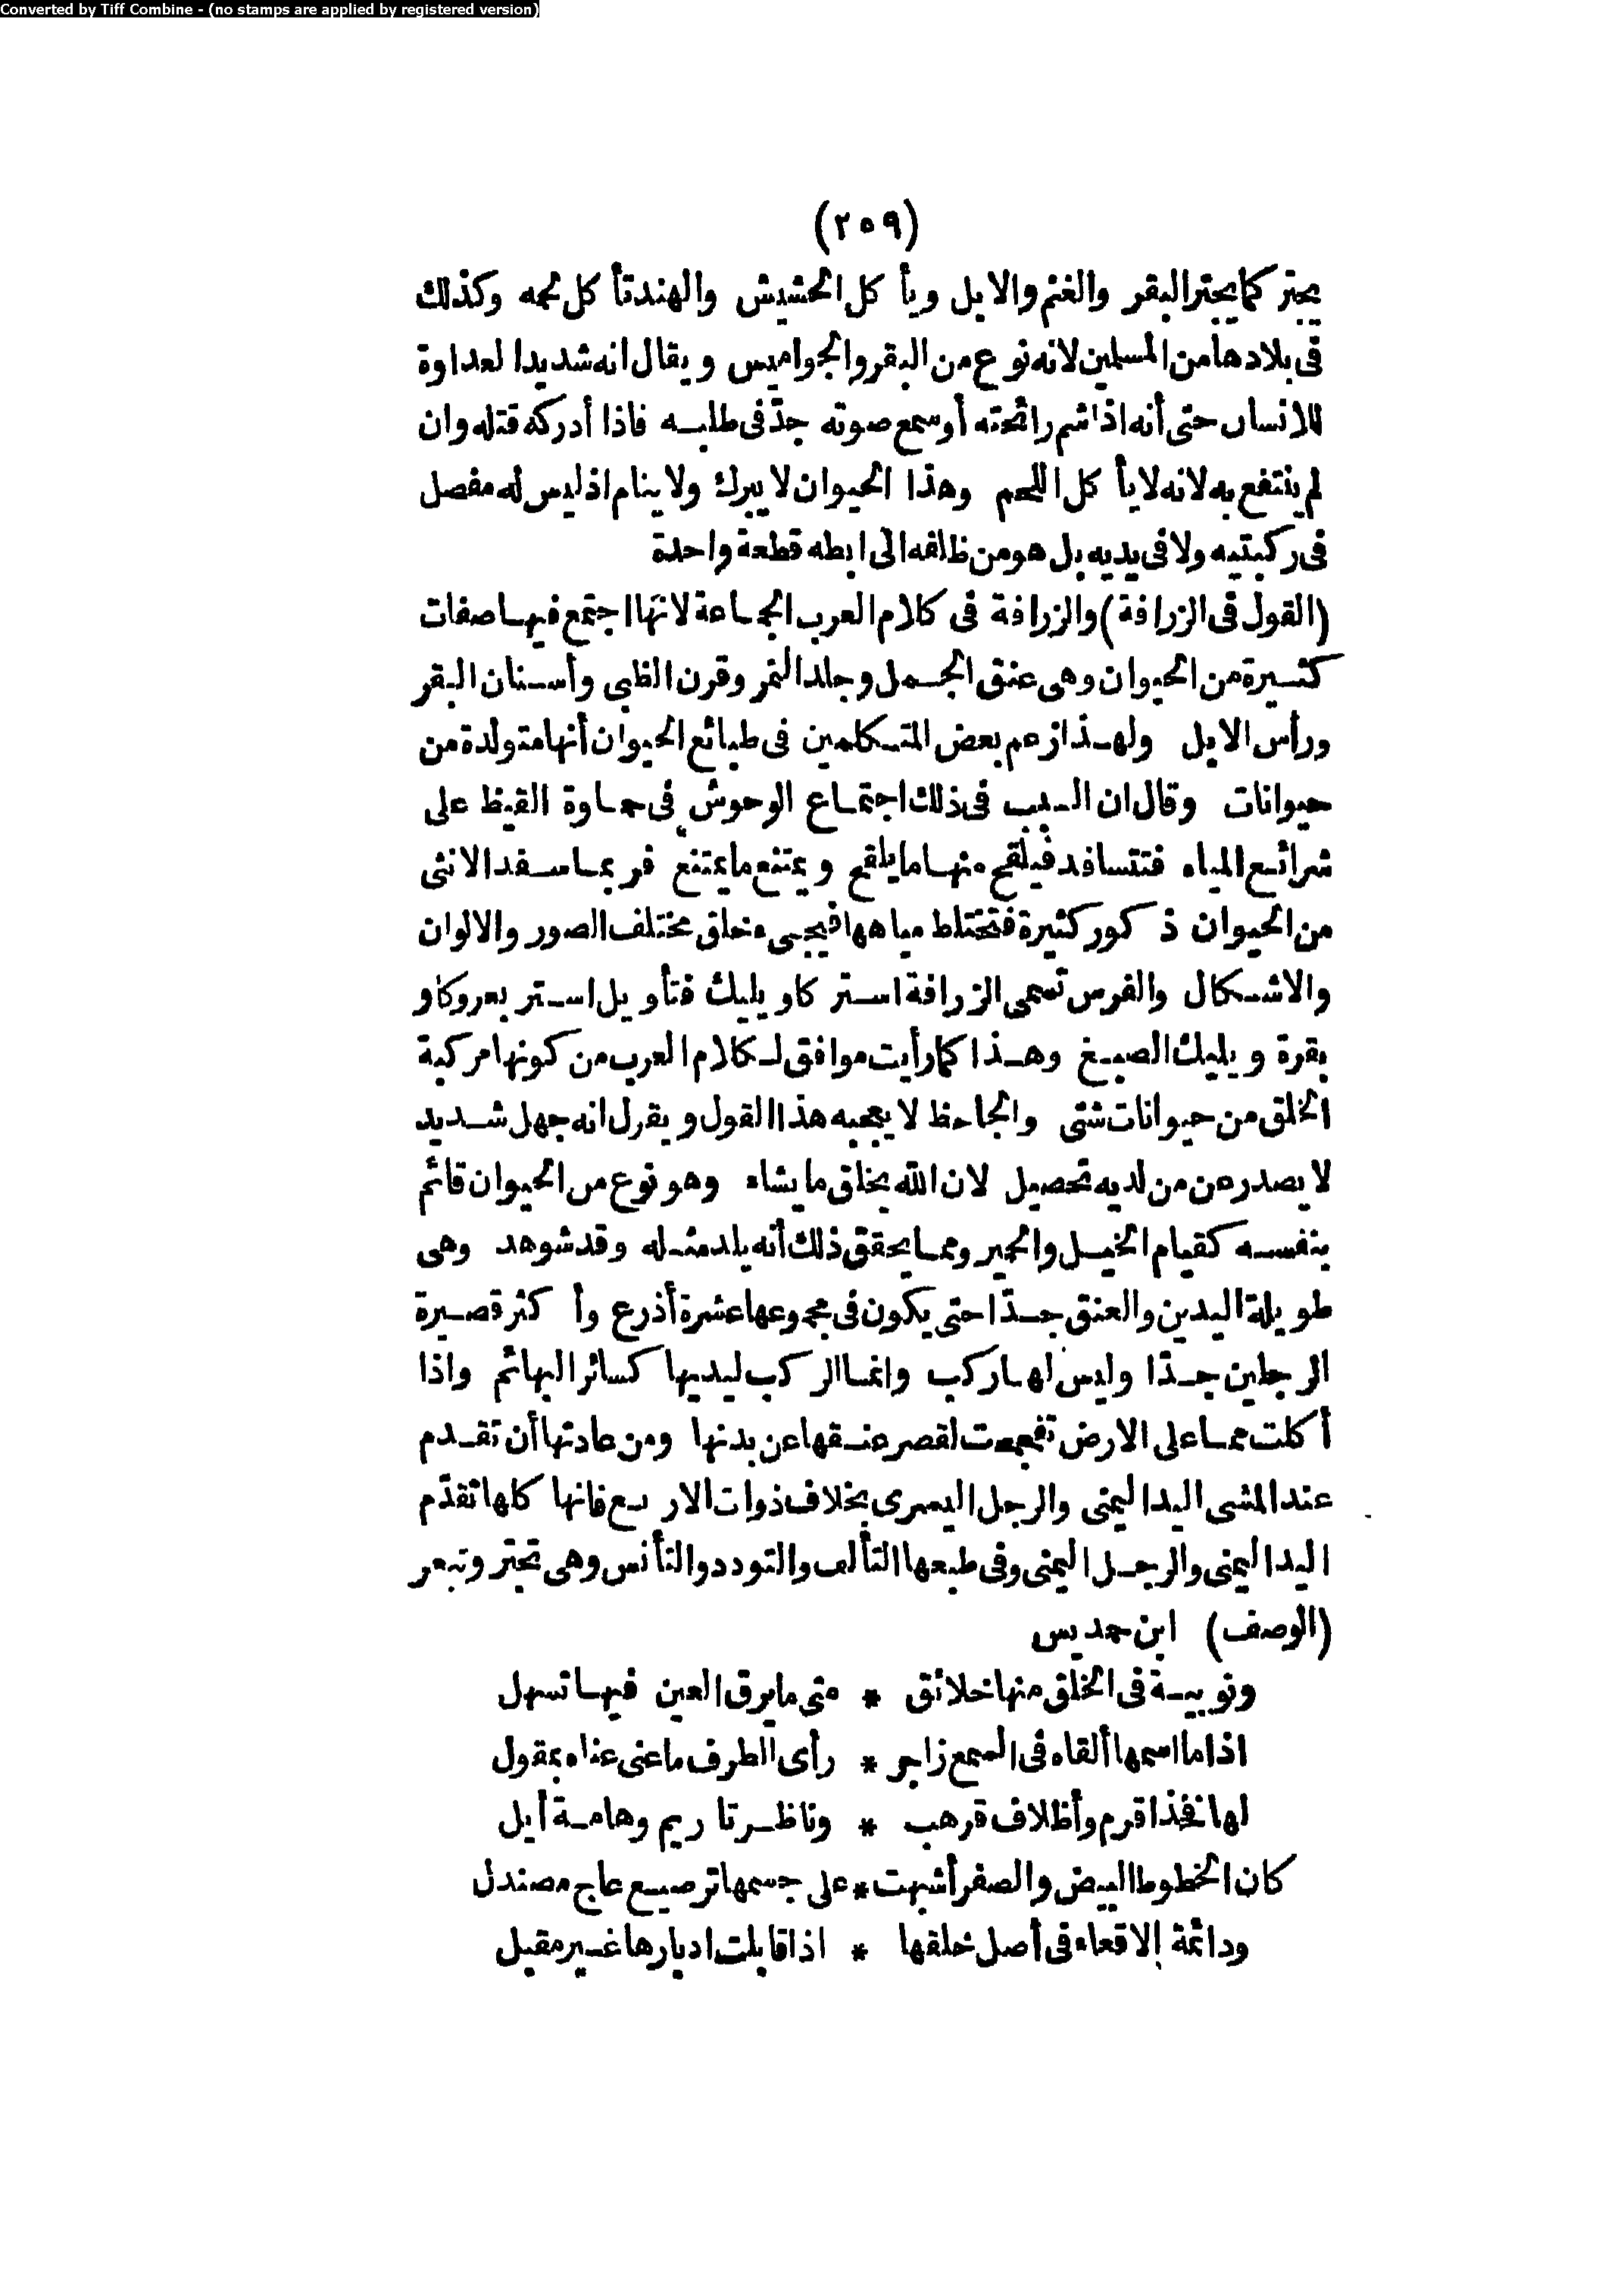 Converted by Tiff Combine - (no stamps are applied by registered version)
(٢٥٩)
يجتر كما يجتر البقر والغنم والابل ويأكل الحشيش والهند تأكل لحمه وكذلك
فى بلادها من المسلمين لانه نوع من البقر والجواميس ويقال انه شديد العداوة
للانسان حتى أنه اذا شم رائحته أو سمع صوته جدّ فى طلبه فاذا أدركه قتله وان
لم ينتفع به لانه لا يأكل اللحم وهذا الحيوان لا يبرك ولا ينام اذ ليس له مفصل
فى ركبتيه ولا فى يديه بل هو من ظلفه الى ابطه قطعة واحدة
(القول فى الزرافة) والزرافة فى كلام العرب الجماعة لانها اجتمع فيها صفات
كثيرة من الحيوان وهى عنق الجمل وجلد النمر وقرن الظبى وأسنان البقر
ورأس الابل ولهذا زعم بعض المتكلمين فى طبائع الحيوان أنها متولدة من
حيوانات وقال ان السبب فى ذلك اجتماع الوحوش فى حماوة القيظ على
شرائع المياه فتتسافد فيلقح منها ما يلقح ويمتنع ما يمتنع فربما سفد الانثى
من الحيوان ذكور كثيرة فتختلط مياهها فيجىء خلق مختلف الصور والالوان
والاشكال والفرس تسمى الزرافة استركاو يليك فتأويل استر بعر وكاو
بقرة ويليك الصبغ وهذا كما رأيت موافق لكلام العرب من كونها مركبة
الخلق من حيوانات شتى والجاحظ لا يعجبه هذا القول ويقول انه جهل شديد
لا يصدر عن من لديه تحصيل لان الله يخلق ما يشاء وهو نوع من الحيوان قائم
بنفسه كقيام الخيل والحمير ومما يحقق ذلك أنه يلد مثله وقد شوهد وهى
طويلة اليدين والعنق جدّا حتى يكون فى مجموعها عشرة أذرع وأكثر قصيرة
الرجلين جدّا وليس لها ركب وانما الركب ليديها كسائر البهائم واذا
أكلت مما على الارض تفحجت لقصر عنقها عن بدنها ومن عادتها أن تقدم
عند المشى اليد اليمنى والرجل اليسرى بخلاف ذوات الاربع فانها كلها تقدّم
اليد اليمنى والرجل اليمنى وفى طبعها التألف والتودد والتأنس وهى تجتر وتبعر
(الوصف) ابن حمديس
ونوبية فى الخلق منها خلائق * متى ما يرق العين فيها تسهل
اذا ما اسمها ألقاه فى السمع زاجر * رأى الطرف ما عنى عناه بمقول
لها فخذا قرم وأظلاف قرهب * وناظرتا ريم وهامة أيل
كان الخطوط البيض والصفر أشبهت * على جسمها ترصيع عاج مصندل
ودائمة الاقعاء فى أصل خلقها * اذا قابلت ادبارها غير مقبل